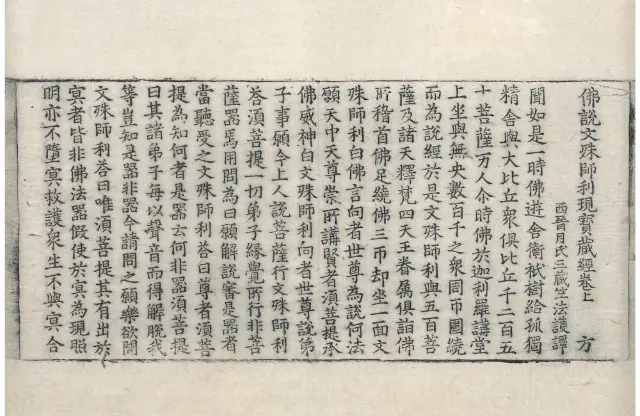 佛說文殊師利現寶藏經卷上 方
西晉月氏三藏竺法護譯
聞如是一時佛遊舍衛祇樹給孤獨
精舍與大比丘衆俱比丘千二百五
十菩薩万人尒時佛於迦利羅講堂
上坐與無央數百千之衆周帀圍繞
而為說經於是文殊師利與五百菩
薩及諸天釋梵四天王眷屬俱詣佛
所稽首佛足繞佛三帀却坐一面文
殊師利白佛言向者世尊為說何法
願天中天尊崇所講賢者須菩提承
佛威神白文殊師利向者世尊說弟
子事願今上人說菩薩行文殊師利
荅須菩提一切弟子緣覺所行非菩
薩器焉用問為曰願解說審是器者
當聽受之文殊師利荅曰尊者須菩
提為知何者是器云何非器須菩提
曰其諸弟子每以聲音而得解脫我
等豈知是器非器今請問之願樂欲聞
文殊師利荅曰唯須菩提其有出於
冥者皆非佛法器假使於冥為現照
明亦不墮冥救護衆生不與冥合